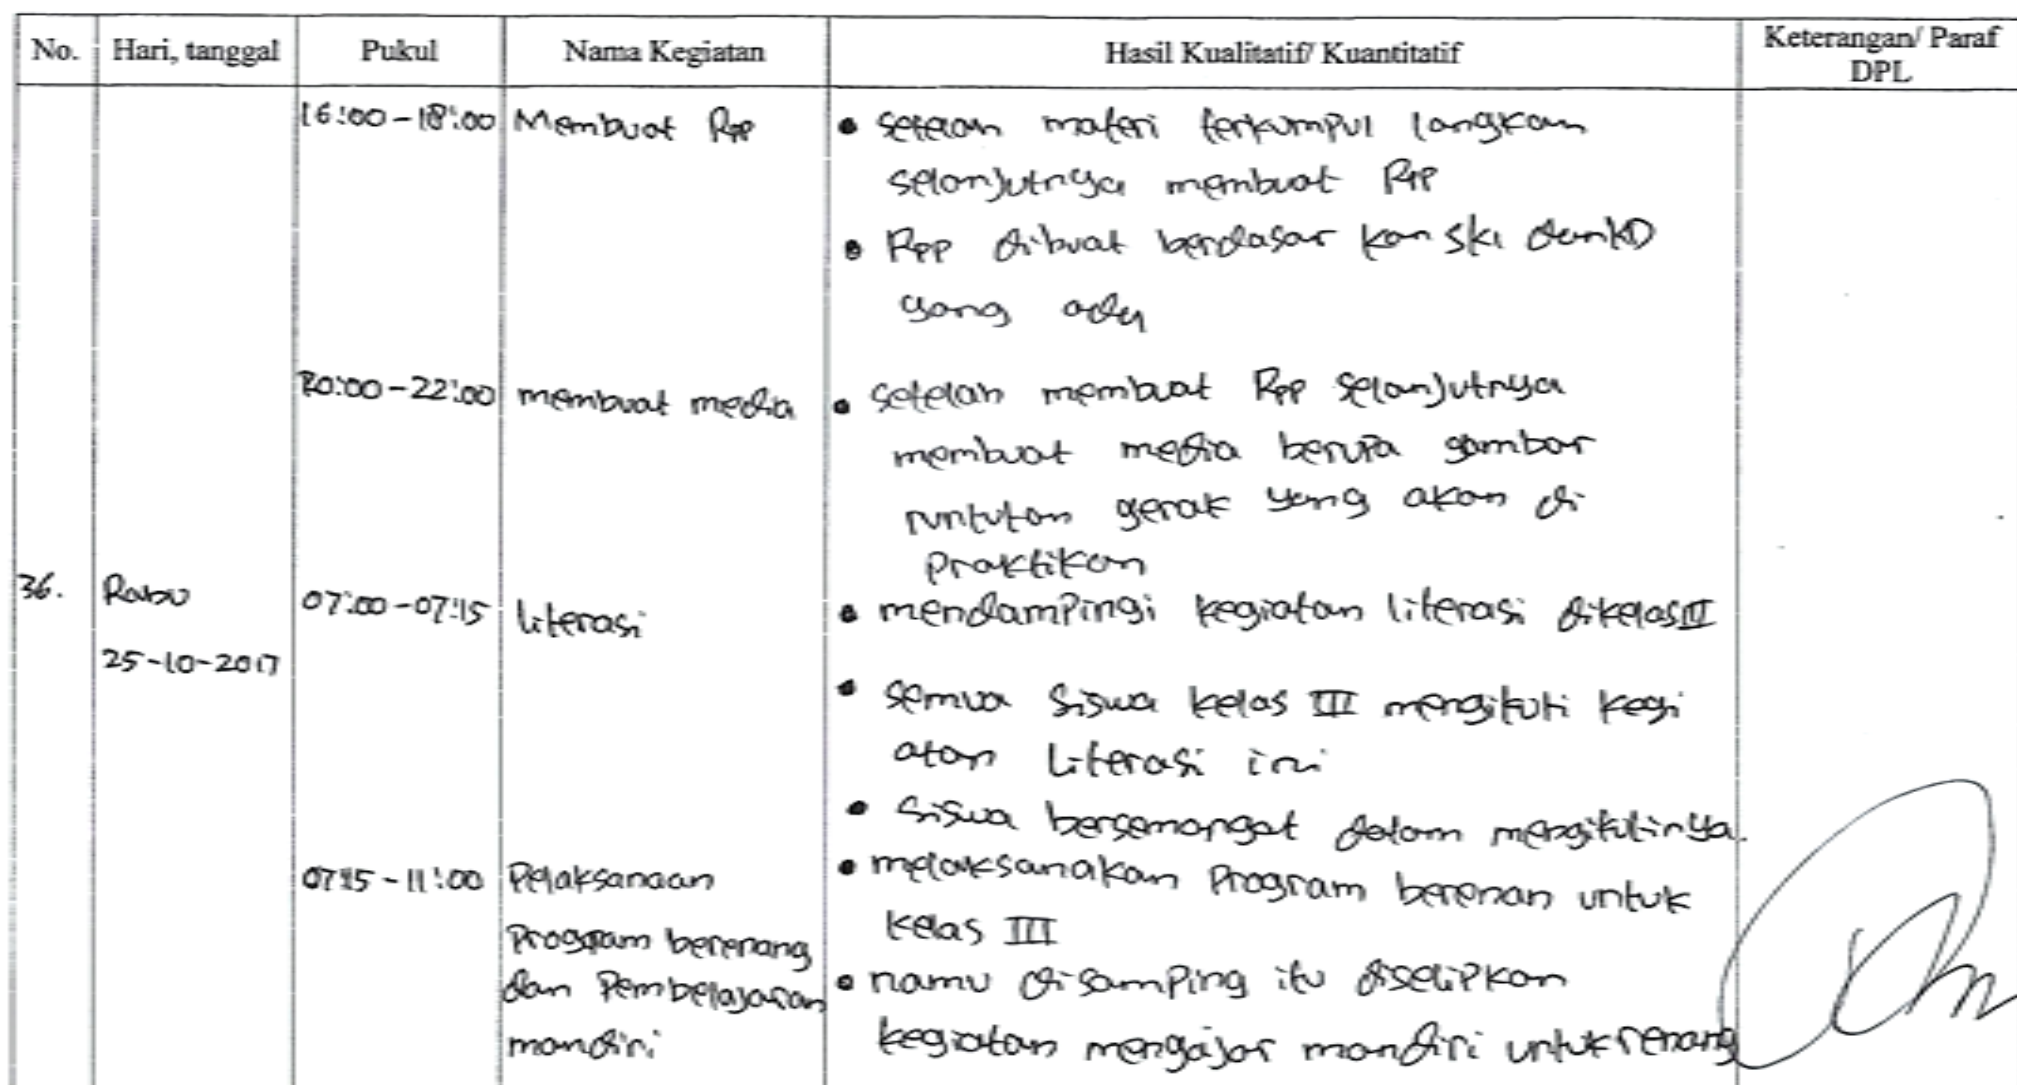 No. Hari, tanggal Pukul Nama Kegiatan Hasil Kualitatif/ Kuantitatif Keterangan/ Paraf DPL
16:00-18:00 Membuat Rpp • setelah materi terkumpul langkah
selanjutnya membuat Rpp
• Rpp dibuat berdasar kan SKI dan KD
yang ada
20:00-22:00 membuat media • setelah membuat Rpp selanjutnya
membuat media berupa gambar
runtutan gerak yang akan di
Praktikan
36. Rabu 07:00-07:15 literasi • mendampingi kegiatan literasi dikelas III
25-10-2017
• semua siswa kelas III mengikuti kegi
atan literasi ini
• siswa bersemangat dalam mengikutinya.
07:15-11:00 Pelaksanaan • melaksanakan Program berenan untuk
Program berenang kelas III
dan Pembelajaran • namu disamping itu diselipkan
mandiri kegiatan mengajar mandiri untuk renang